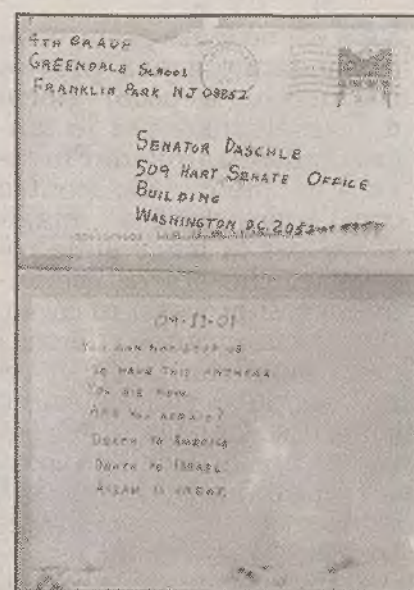 4TH GRADE
GREENDALE SCHOOL
FRANKLIN PARK NJ 08852
SENATOR DASCHLE
509 HART SENATE OFFICE
BUILDING
WASHINGTON D.C. 2051
09-11-01
YOU CAN NOT STOP US.
WE HAVE THIS ANTHRAX.
YOU DIE NOW.
ARE YOU AFRAID?
DEATH TO AMERICA.
DEATH TO ISRAEL.
ALLAH IS GREAT.